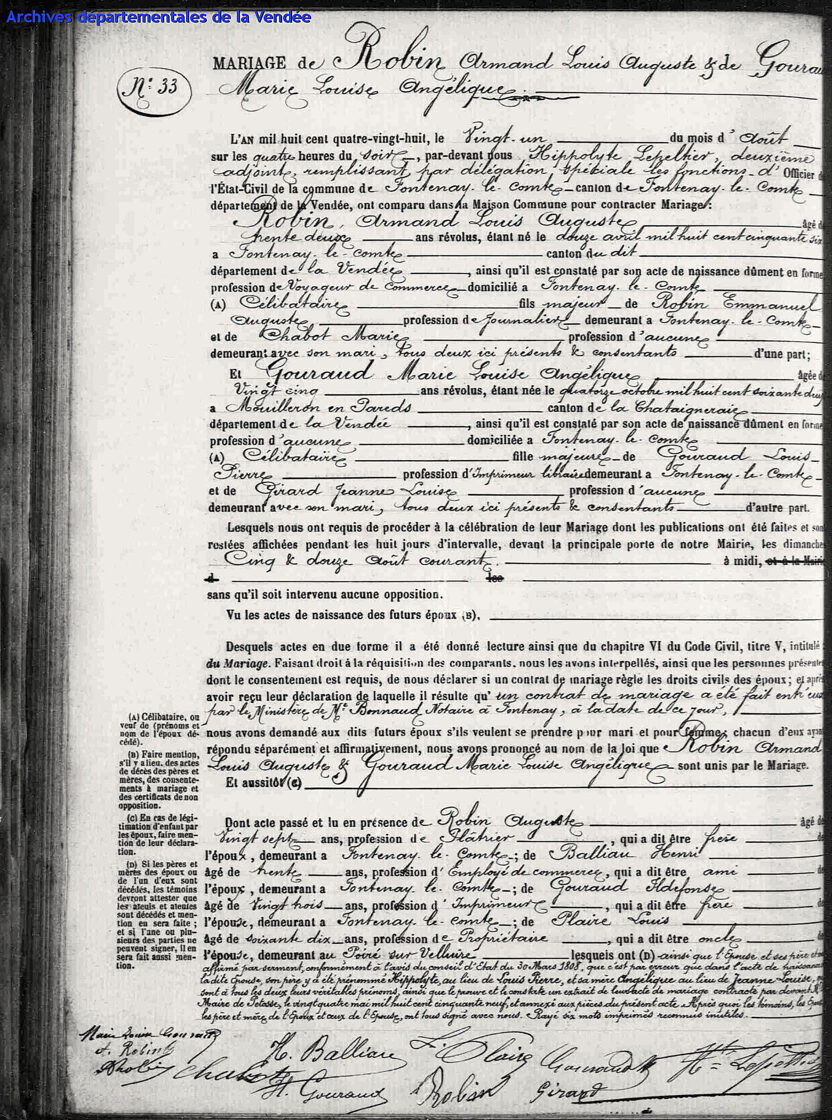 Archives départementales de la Vendée
MARIAGE de Robin Armand Louis Auguste & de Gourau
N° 33
Marie Louise Angélique.
L'AN mil huit cent quatre-vingt-huit, le Vingt-un du mois d'Août
sur les quatre heures du soir, par-devant nous Hippolyte Lepeltier, deuxième
adjoint, remplissant par délégation spéciale les fonctions d'Officier d
l'État-Civil de la commune de Fontenay-le-Comte canton de Fontenay-le-Comte
département de la Vendée, ont comparu dans la Maison Commune pour contracter Mariage :
Robin, Armand Louis Auguste âgé d
trente deux ans révolus, étant né le douze avril mil huit cent cinquante six
a Fontenay-le-comte canton du dit
département de la Vendée, ainsi qu'il est constaté par son acte de naissance dûment en forme
profession de Voyageur de Commerce domicilié a Fontenay-le-Comte
(A) Célibataire fils majeur de Robin Emmanuel
Auguste profession de Journalier demeurant a Fontenay-le-Comte
et de Chabot Marie profession d'aucune
demeurant avec son mari, tous deux ici présents & consentants d'une part;
Et Gouraud Marie Louise Angélique âgée de
Vingt cinq ans révolus, étant née le quatorze octobre mil huit cent soixante deux
a Mouilleron en Pareds canton de la Chataigneraie
département de la Vendée, ainsi qu'il est constaté par son acte de naissance dûment en forme
profession d'aucune domiciliée a Fontenay-le-Comte
(A) Célibataire fille majeure de Gouraud Louis-
Pierre profession d'Imprimeur libraire demeurant a Fontenay-le-Comte
et de Girard Jeanne Louise profession d'aucune
demeurant avec son mari, tous deux ici présents & consentants d'autre part.
Lesquels nous ont requis de procéder à la célébration de leur Mariage dont les publications ont été faites et son
restées affichées pendant les huit jours d'intervalle, devant la principale porte de notre Mairie, les dimanche
Cinq & douze Août courant. à midi, et à la Mairie
d les
sans qu'il soit intervenu aucune opposition.
Vu les actes de naissance des futurs époux (B),
Desquels actes en due forme il a été donné lecture ainsi que du chapitre VI du Code Civil, titre V, intitulé :
du Mariage. Faisant droit à la réquisition des comparants, nous les avons interpellés, ainsi que les personnes présentes
dont le consentement est requis, de nous déclarer si un contrat de mariage règle les droits civils des époux; et après
avoir reçu leur déclaration de laquelle il résulte qu'un contrat de mariage a été fait entr'eux
par le Ministère de Mᵉ Bonnaud Notaire à Fontenay, à la date de ce jour,
nous avons demandé aux dits futurs époux s'ils veulent se prendre pour mari et pour femme, chacun d'eux ayan
répondu séparément et affirmativement, nous avons prononcé au nom de la loi que Robin Armand
Louis Auguste & Gouraud Marie Louise Angélique sont unis par le Mariage.
Et aussitôt (C)
Dont acte passé et lu en présence de Robin Auguste âgé de
Vingt sept ans, profession de Plâtrier, qui a dit être frère de
l'époux, demeurant a Fontenay-le-Comte; de Balliau Henri
âgé de trente ans, profession d'Employé de commerce, qui a dit être ami de
l'époux, demeurant a Fontenay-le-Comte; de Gouraud Ildefonse
âgé de Vingt trois ans, profession d'Imprimeur, qui a dit être frère de
l'épouse, demeurant a Fontenay-le-comte; de Plaire Louis
âgé de soixante dix ans, profession de Propriétaire, qui a dit être oncle de
l'épouse, demeurant au Poiré sur Velluire lesquels ont (D) ainsi que l'Epouse et ses père et
affirmé par serment, conformément à l'avis du conseil d'Etat du 30 Mars 1808, que c'est par erreur que dans l'acte de naissance
la dite Epouse, son père y a été prénommé Hippolyte, au lieu de Louis Pierre, et sa mère Angélique au lieu de Jeanne Louise,
sont à tous les deux leurs véritables prénoms, ainsi que le prouve et le constate un extrait de leur acte de mariage contracté par devant M
Maire de le vingt quatre mai mil huit cent cinquante neuf, et annexé aux pièces du présent acte. Après quoi les témoins, les Epoux
les père et mère de l'Epoux et ceux de l'Epouse, ont tous signé avec nous. Rayé six mots imprimés reconnus inutiles.
(A) Célibataire, ou
veuf de (prénoms et
nom de l'époux dé-
cédé).
(B) Faire mention,
s'il y a lieu, des actes
de décès des pères et
mères, des consente-
ments à mariage et
des certificats de non
opposition.
(C) En cas de légi-
timation d'enfant par
les époux, faire men-
tion de leur déclara-
tion.
(D) Si les pères et
mères des époux ou
de l'un d'eux sont
décédés, les témoins
devront attester que
les aïeuls et aïeules
sont décédés et men-
tion en sera faite ;
et si l'une ou plu-
sieurs des parties ne
peuvent signer, il en
sera fait aussi men-
tion.
Marie Louise Gouraud
A. Robin
A Robin Chabot H. Balliau L. Plaire Gouraud
H. Gouraud Robin Girard